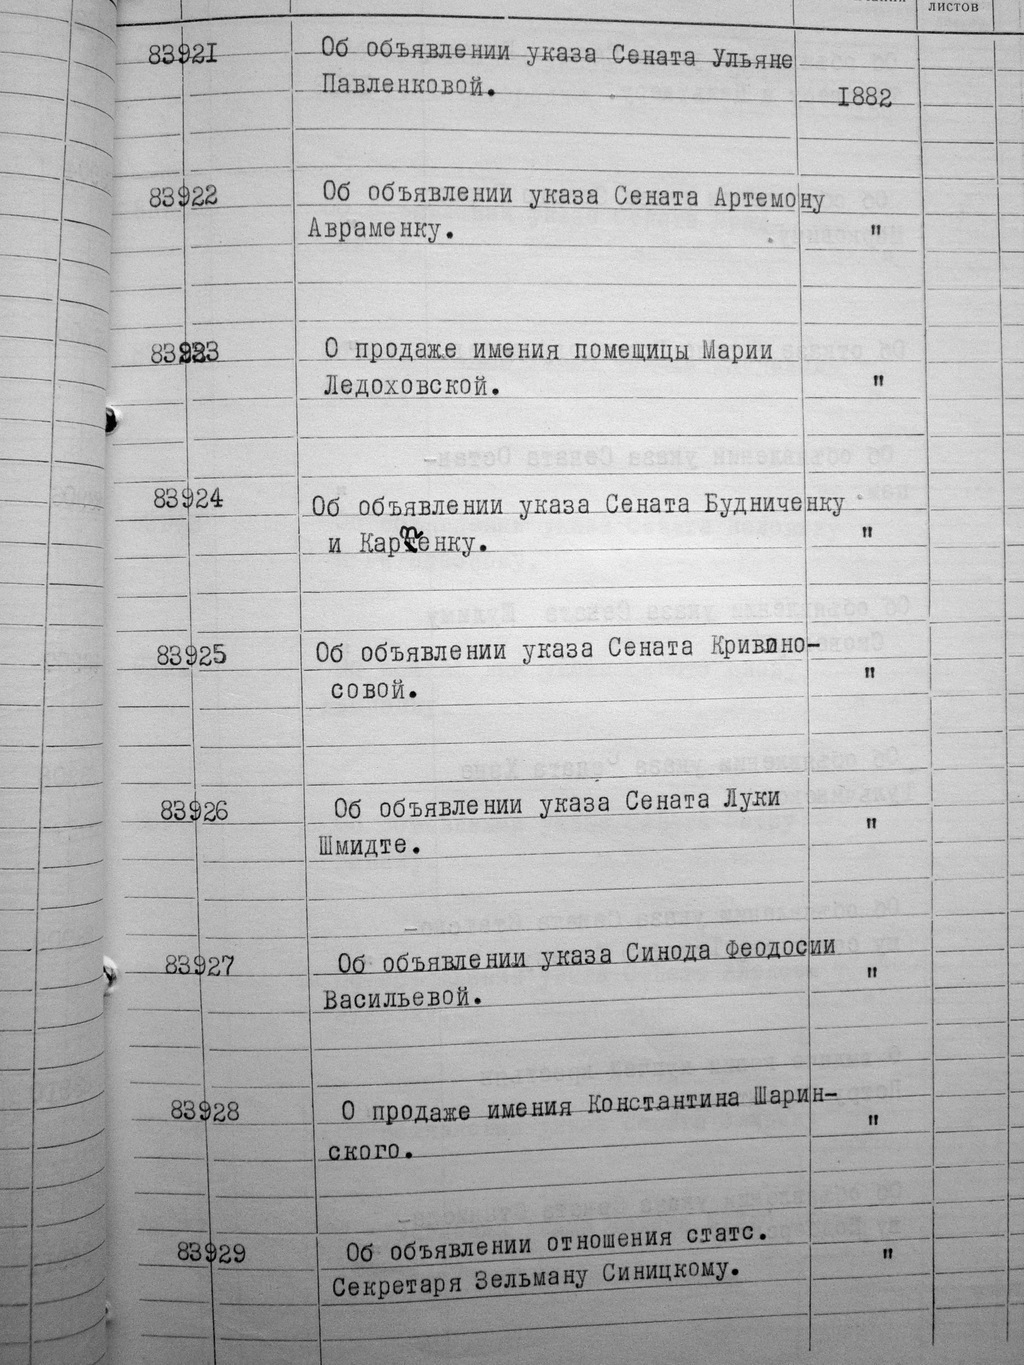 листов
83921 Об объявлении указа Сената Ульяне
Павленковой. 1882
83922 Об объявлении указа Сената Артемону
Авраменку. "
83923 О продаже имения помещицы Марии
Ледоховской. "
83924 Об объявлении указа Сената Будниченку
и Карпенку. "
83925 Об объявлении указа Сената Кривино-
совой. "
83926 Об объявлении указа Сената Луки
Шмидте. "
83927 Об объявлении указа Синода Феодосии
Васильевой. "
83928 О продаже имения Константина Шарин-
ского. "
83929 Об объявлении отношения статс.
Секретаря Зельману Синицкому. "